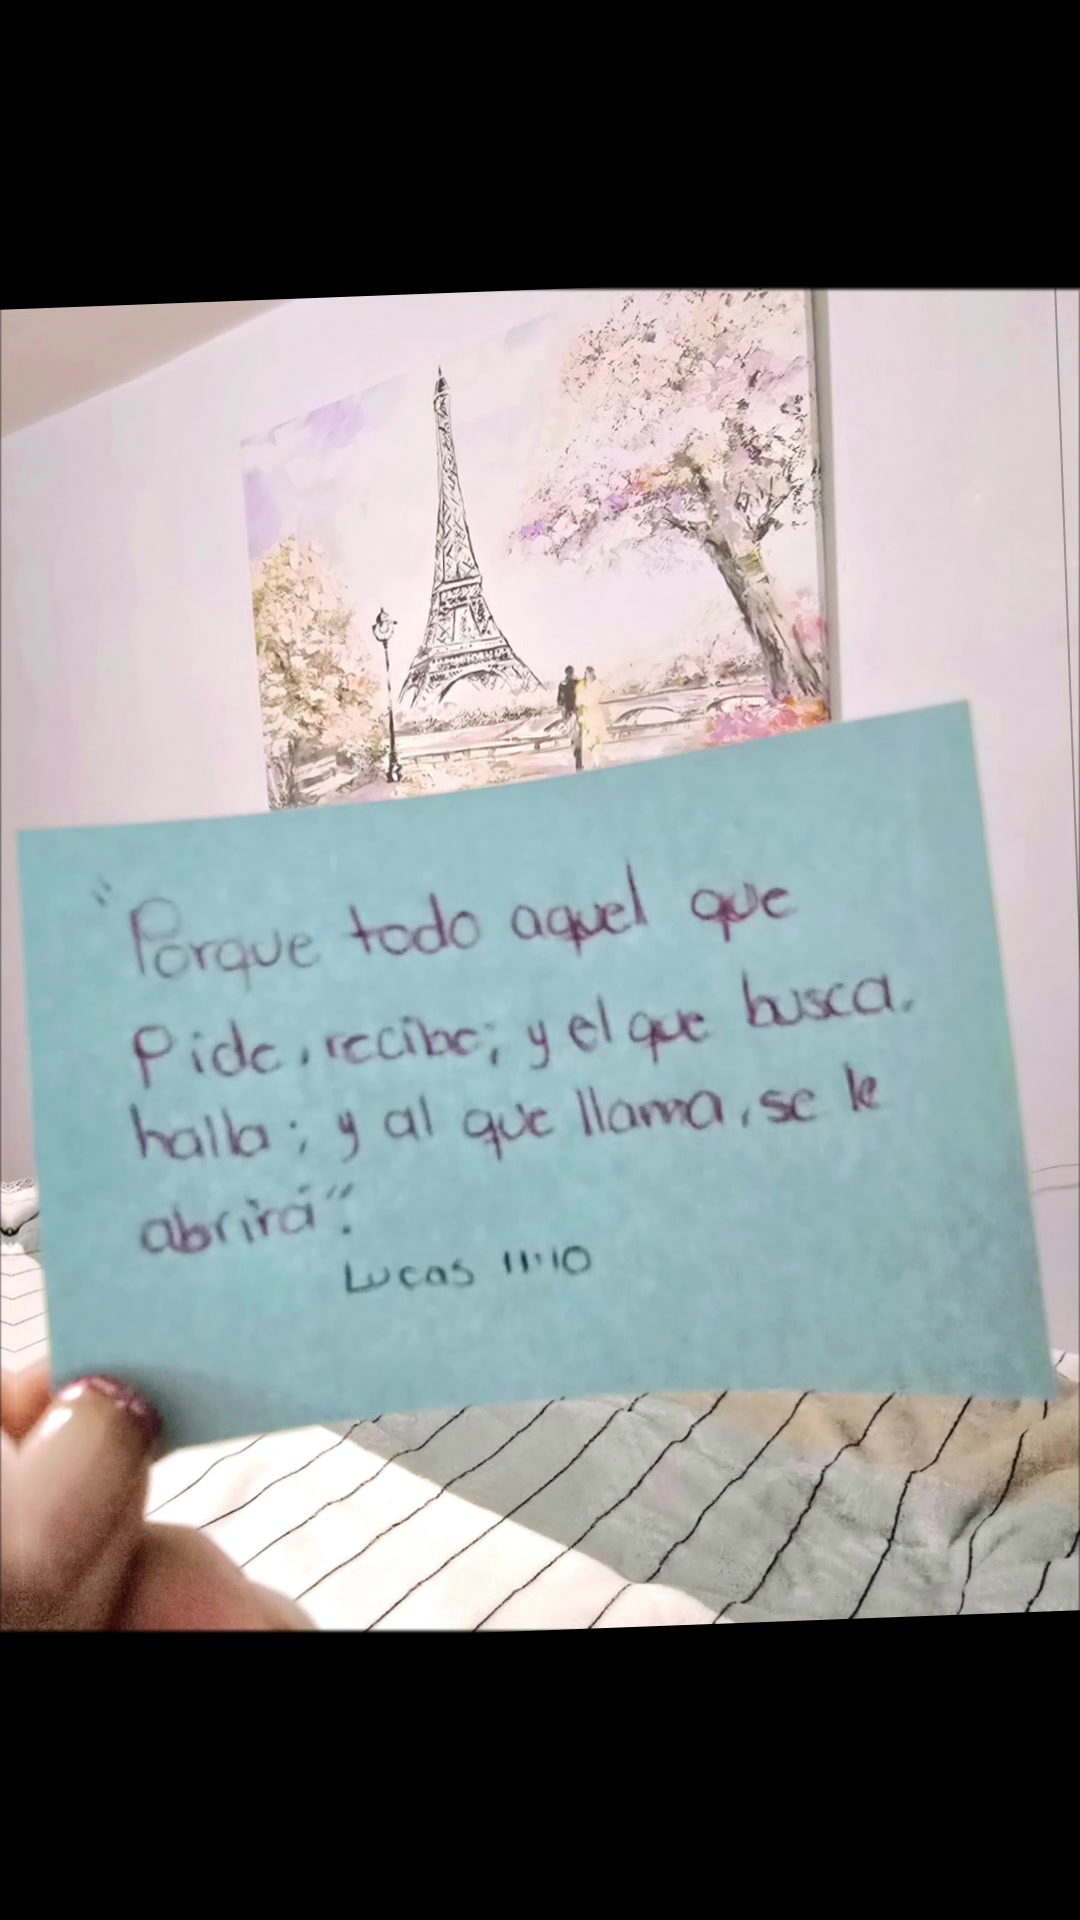 "Porque todo aquel que
Pide, recibe; y el que busca,
halla; y al que llama, se le
abrirá".
Lucas 11:10